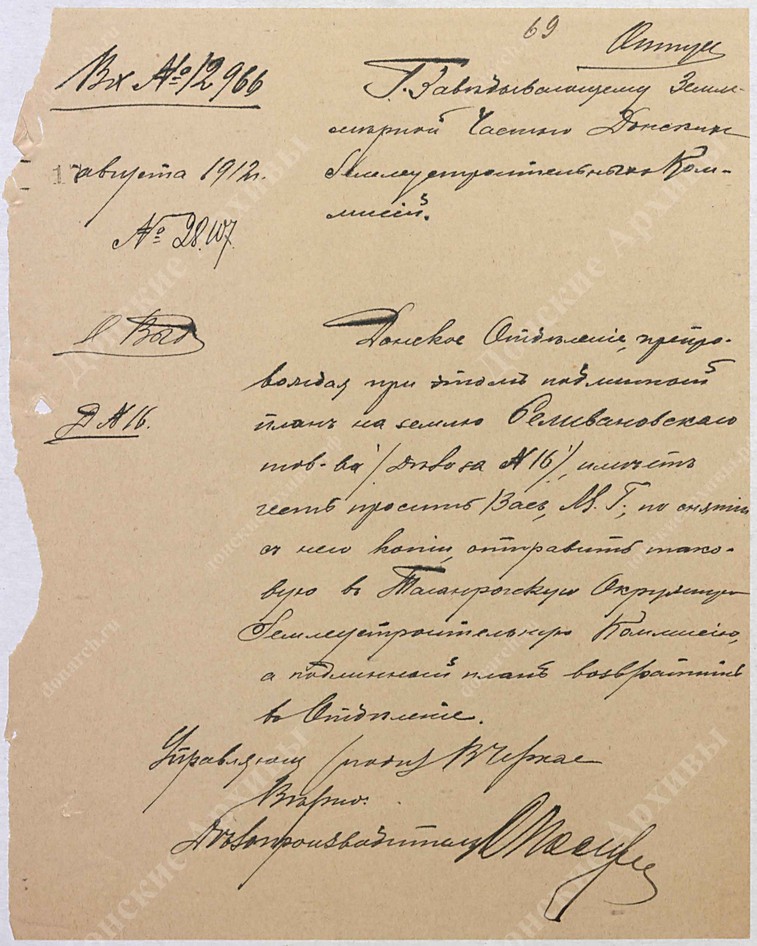 69
Отпуск
Вх № 12966
Г. Завѣдывающему Земле-
мѣрной Частью Донскихъ
17 августа 1912 г.
Землеустроительныхъ Ком-
миссій.
№ 28107.
Донское Отдѣленіе, препро-
вождая при этомъ подлинный
Д № 16.
планъ на землю Селивановскаго
тов-ва /дѣло за № 16/, имѣетъ
честь просить Васъ, М. Г., по снятіи
съ него копіи, отправить тако-
вую въ Таганрогскую Окружную
Землеустроительную Коммисію,
а подлинный планъ возвратить
въ Отдѣленіе.
Управляющ /подп/
Вѣрно:
Дѣлопроизводитель